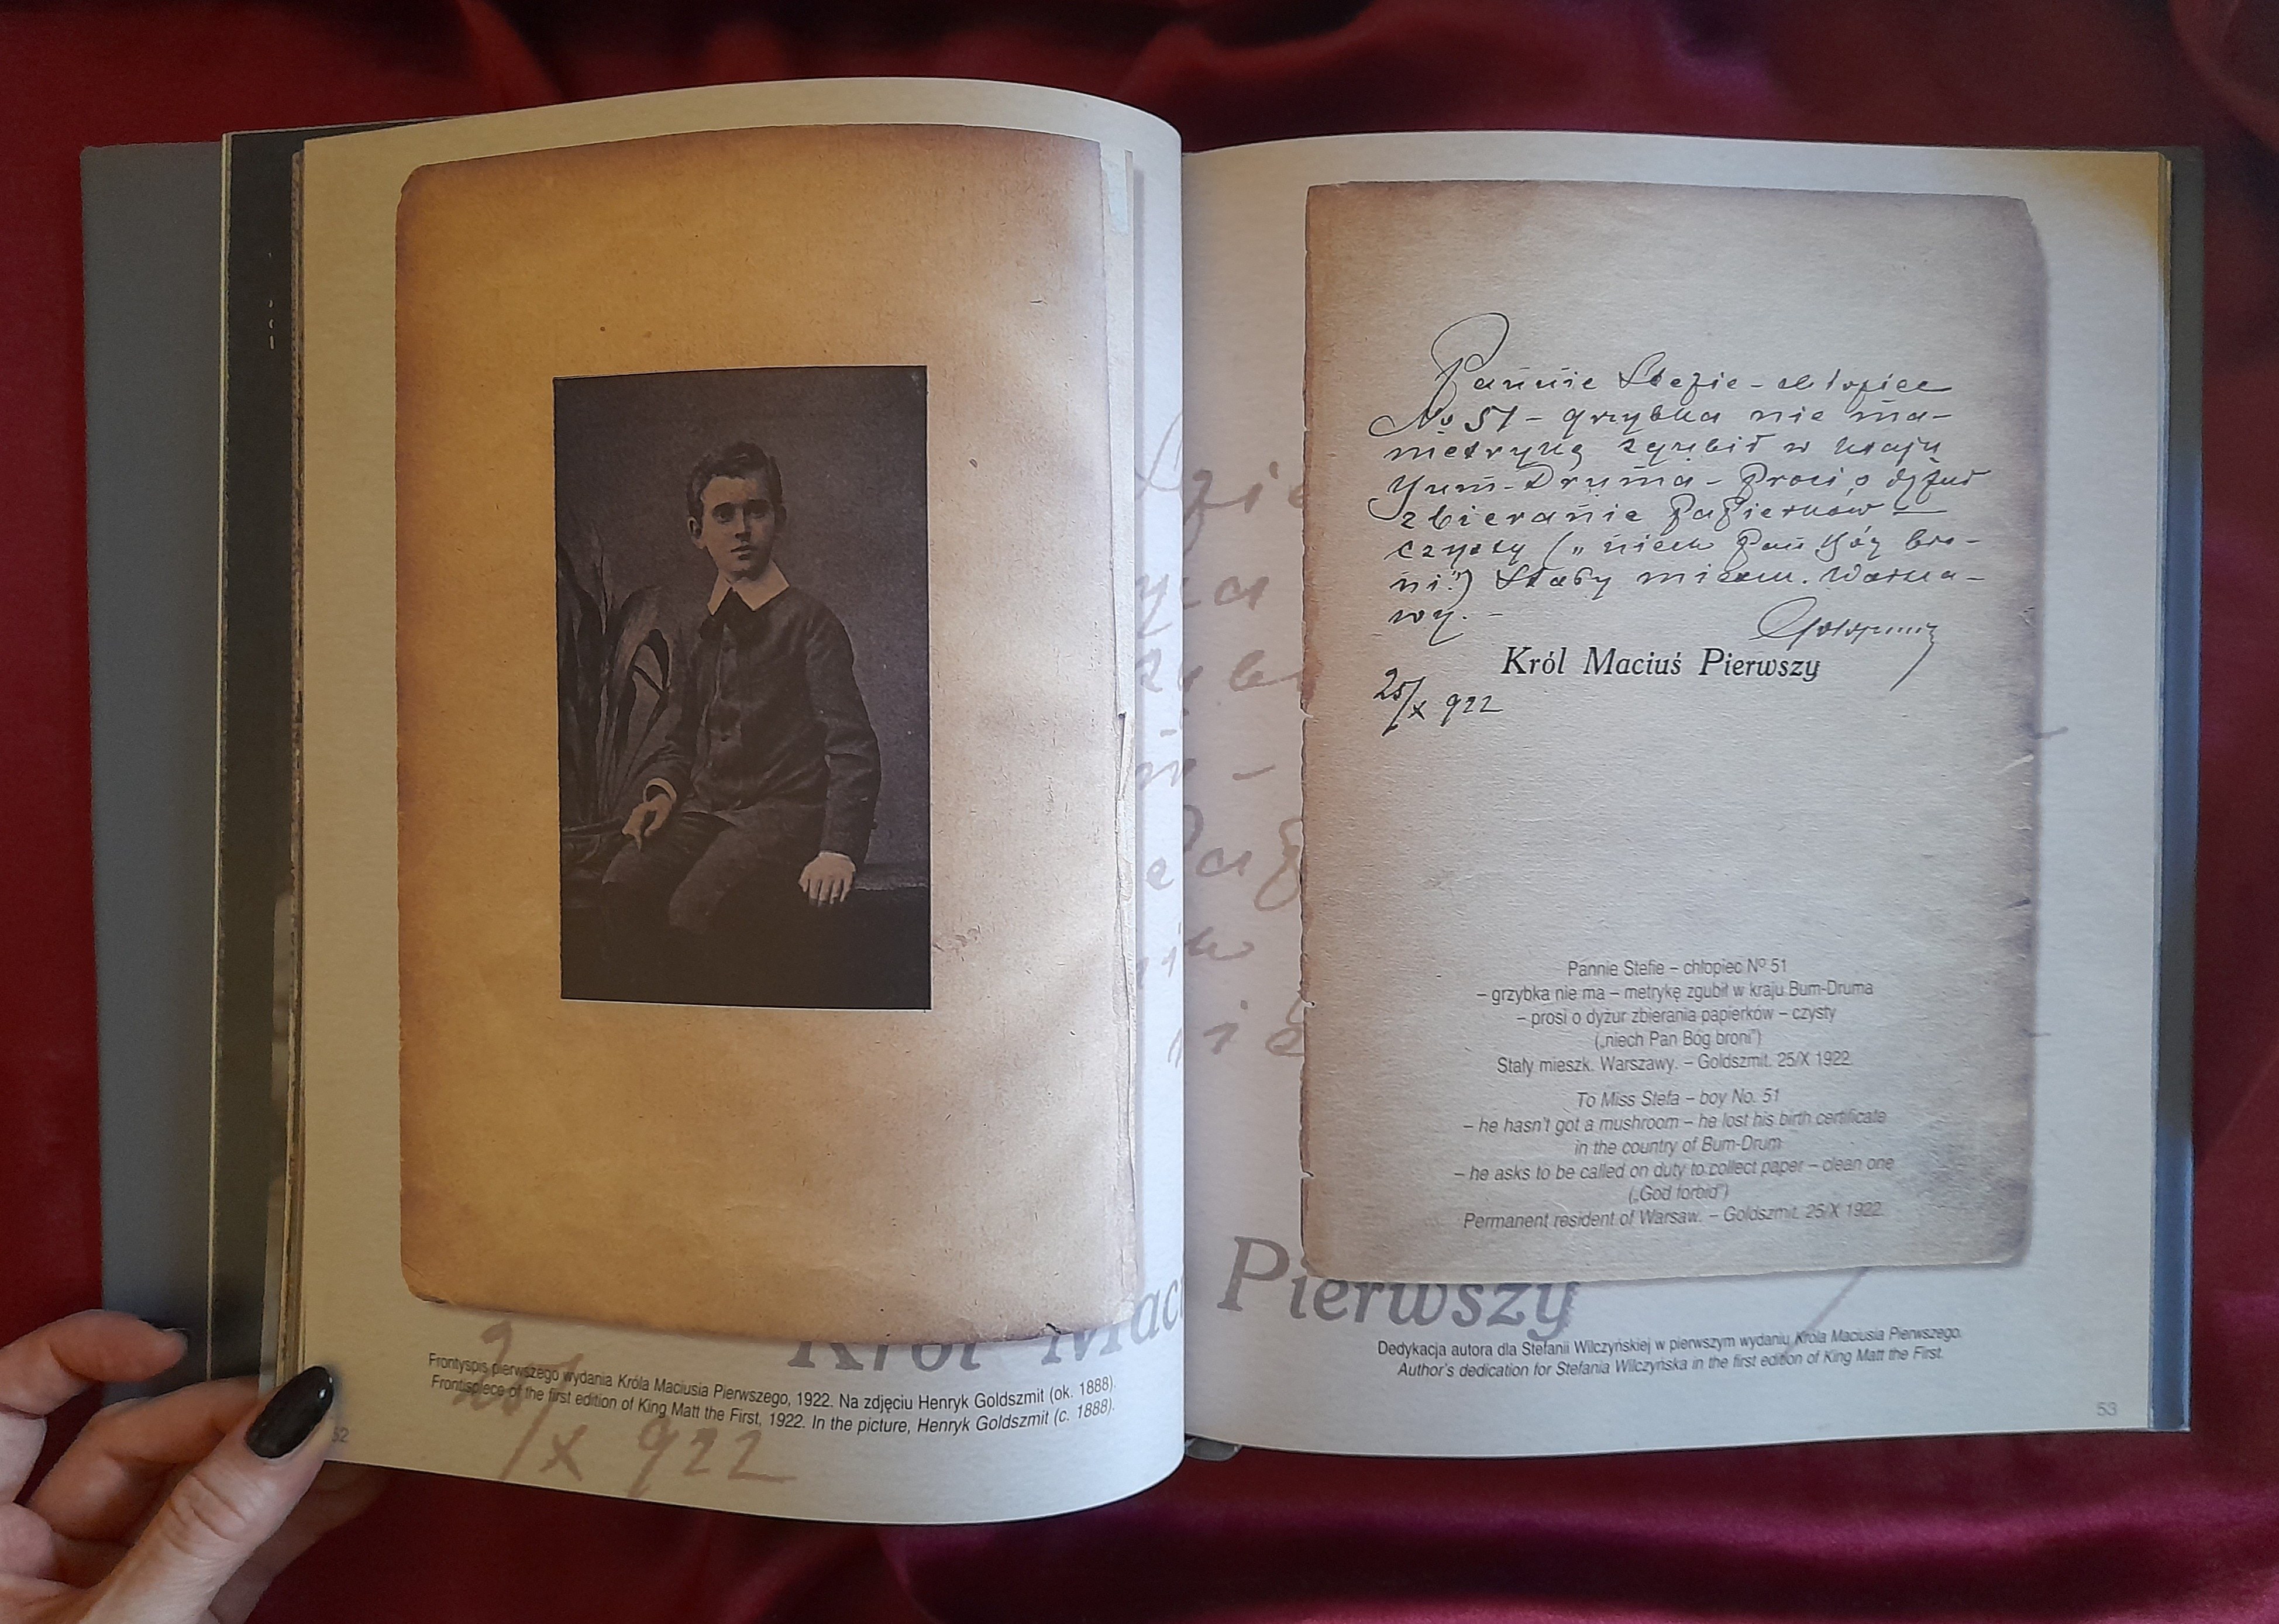 Frontyspis pierwszego wydania Króla Maciusia Pierwszego, 1922. Na zdjęciu Henryk Goldszmit (ok. 1888).
Frontispiece of the first edition of King Matt the First, 1922. In the picture, Henryk Goldszmit (c. 1888).
52
25/X 922
Król Maci Pierwszy
Pannie Stefie - chłopiec
No 51 - grzybka nie ma -
metrykę zgubił w kraju
Bum-Druma - Prosi o dyżur
zbieranie papierków -
czysty („niech Pan Bóg bro-
ni”) Stały mieszk. Warsza-
wy. -
Goldszmit
Król Maciuś Pierwszy
25/X 922
Pannie Stefie – chłopiec Nº 51
– grzybka nie ma – metrykę zgubił w kraju Bum-Druma
– prosi o dyżur zbierania papierków – czysty
(„niech Pan Bóg broni”)
Stały mieszk. Warszawy. – Goldszmit. 25/X 1922
To Miss Stefa – boy No. 51
– he hasn't got a mushroom – he lost his birth certificate
in the country of Bum-Drum
– he asks to be called on duty to collect paper – clean one
(„God forbid”)
Permanent resident of Warsaw. – Goldszmit. 25/X 1922
Dedykacja autora dla Stefanii Wilczyńskiej w pierwszym wydaniu Króla Maciusia Pierwszego.
Author's dedication for Stefania Wilczyńska in the first edition of King Matt the First.
53